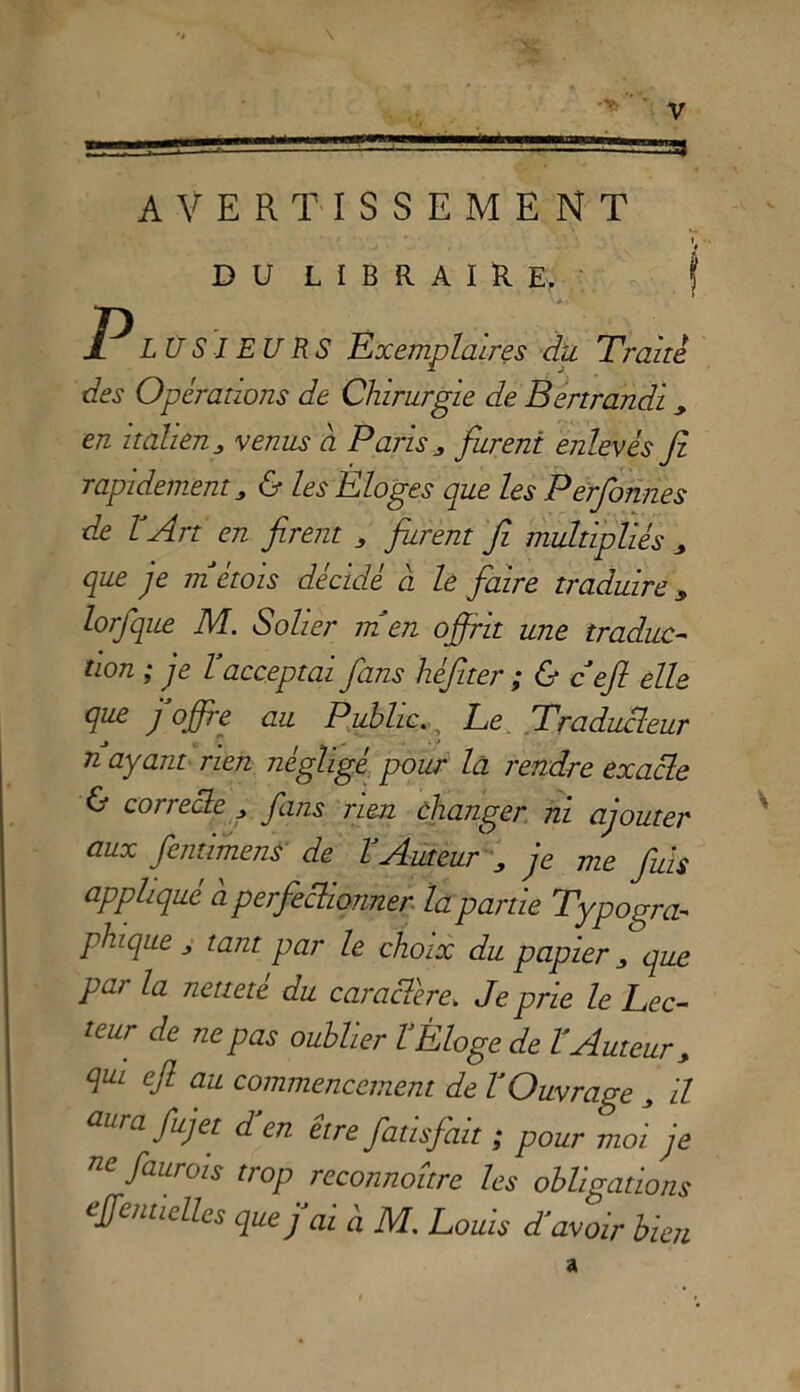 v
AVERTISSEMENT
DU LIBRAIRE.
PLUSIEURS Exemplaires du Traité
des Opérations de Chirurgie de Bertrandi,
en italien, venus à Paris, furent enlevés ſi
rapidement, & les Éloges que les Perſonnes
de l'Art en firent, furent ſi multipliés,
que je m'étois décidé à le faire traduire,
lorſque M. Solier m'en offrit une traduc-
tion ; je l'acceptai ſans héſiter ; & c'eſt elle
que j'offre au Public. Le Traducteur
n'ayant rien négligé pour la rendre exacte
& correcte, ſans rien changer ni ajouter
aux ſentimens de l'Auteur, je me ſuis
appliqué à perfectionner la partie Typogra-
phique, tant par le choix du papier, que
par la netteté du caractère. Je prie le Lec-
teur de ne pas oublier l'Éloge de l'Auteur,
qui eſt au commencement de l'Ouvrage, il
aura ſujet d'en être ſatisfait ; pour moi je
ne ſaurois trop reconnoître les obligations
eſſentielles que j'ai à M. Louis d'avoir bien
a